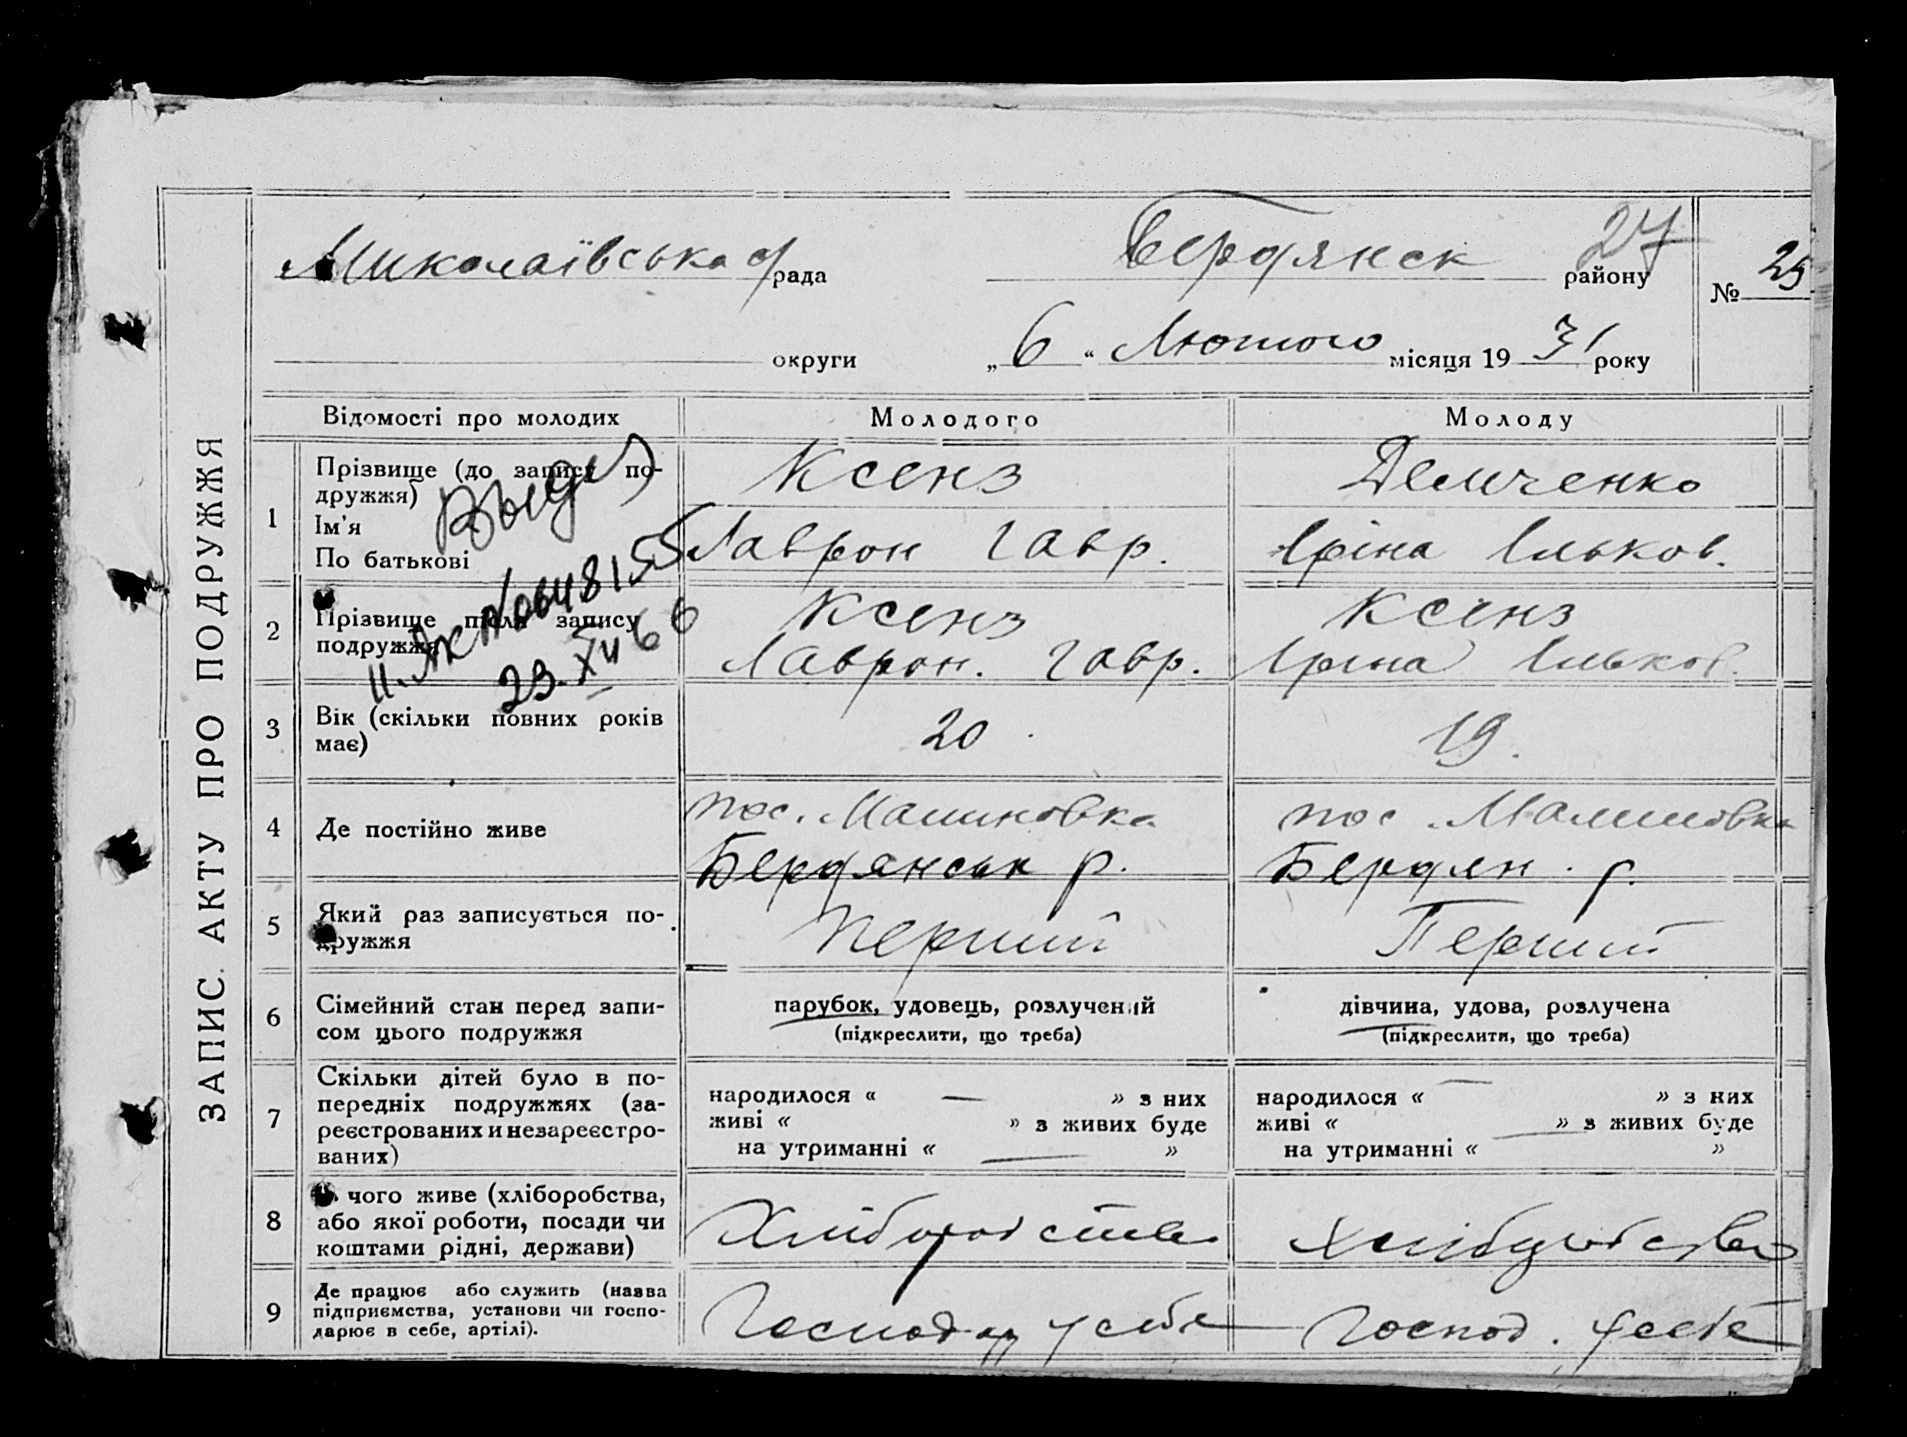 ЗАПИС АКТУ ПРО ПОДРУЖЖЯ
Миколаївська рада
Бердянск району
27
№ 25
округи
„ 6 “ Лютого місяця 19 31 року
Відомості про молодих
Молодого
Молоду
1
Прізвище (до запису по-
дружжя)
Ім'я
По батькові
Ксенз
Лаврон Гавр.
Демченко
Іріна Ільков.
2
Прізвище після запису
подружжя
Ксенз
Лаврон. Гавр.
Ксенз
Іріна Ільков.
23. XII 66
3
Вік (скільки повних років
має)
20
19.
4
Де постійно живе
пос. Малиновка
Бердянськ р.
пос. Малиновка
Бердян. р.
5
Який раз записується по-
дружжя
Перший
Перший
6
Сімейний стан перед запи-
сом цього подружжя
парубок, удовець, розлучений
(підкреслити, що треба)
дівчина, удова, розлучена
(підкреслити, що треба)
7
Скільки дітей було в по-
передніх подружжях (за-
реєстрованих и незареєстро-
ваних)
народилося « — » з них
живі « » з живих буде
на утриманні « — »
народилося « — » з них
живі « — » з живих буде
на утриманні « »
8
чого живе (хліборобства,
або якої роботи, посади чи
коштами рідні, держави)
Хліборобство
Хліборобство
9
Де працює або служить (назва
підприємства, установи чи госпо-
дарює в себе, артілі).
Господар у себе
Господ. у себе